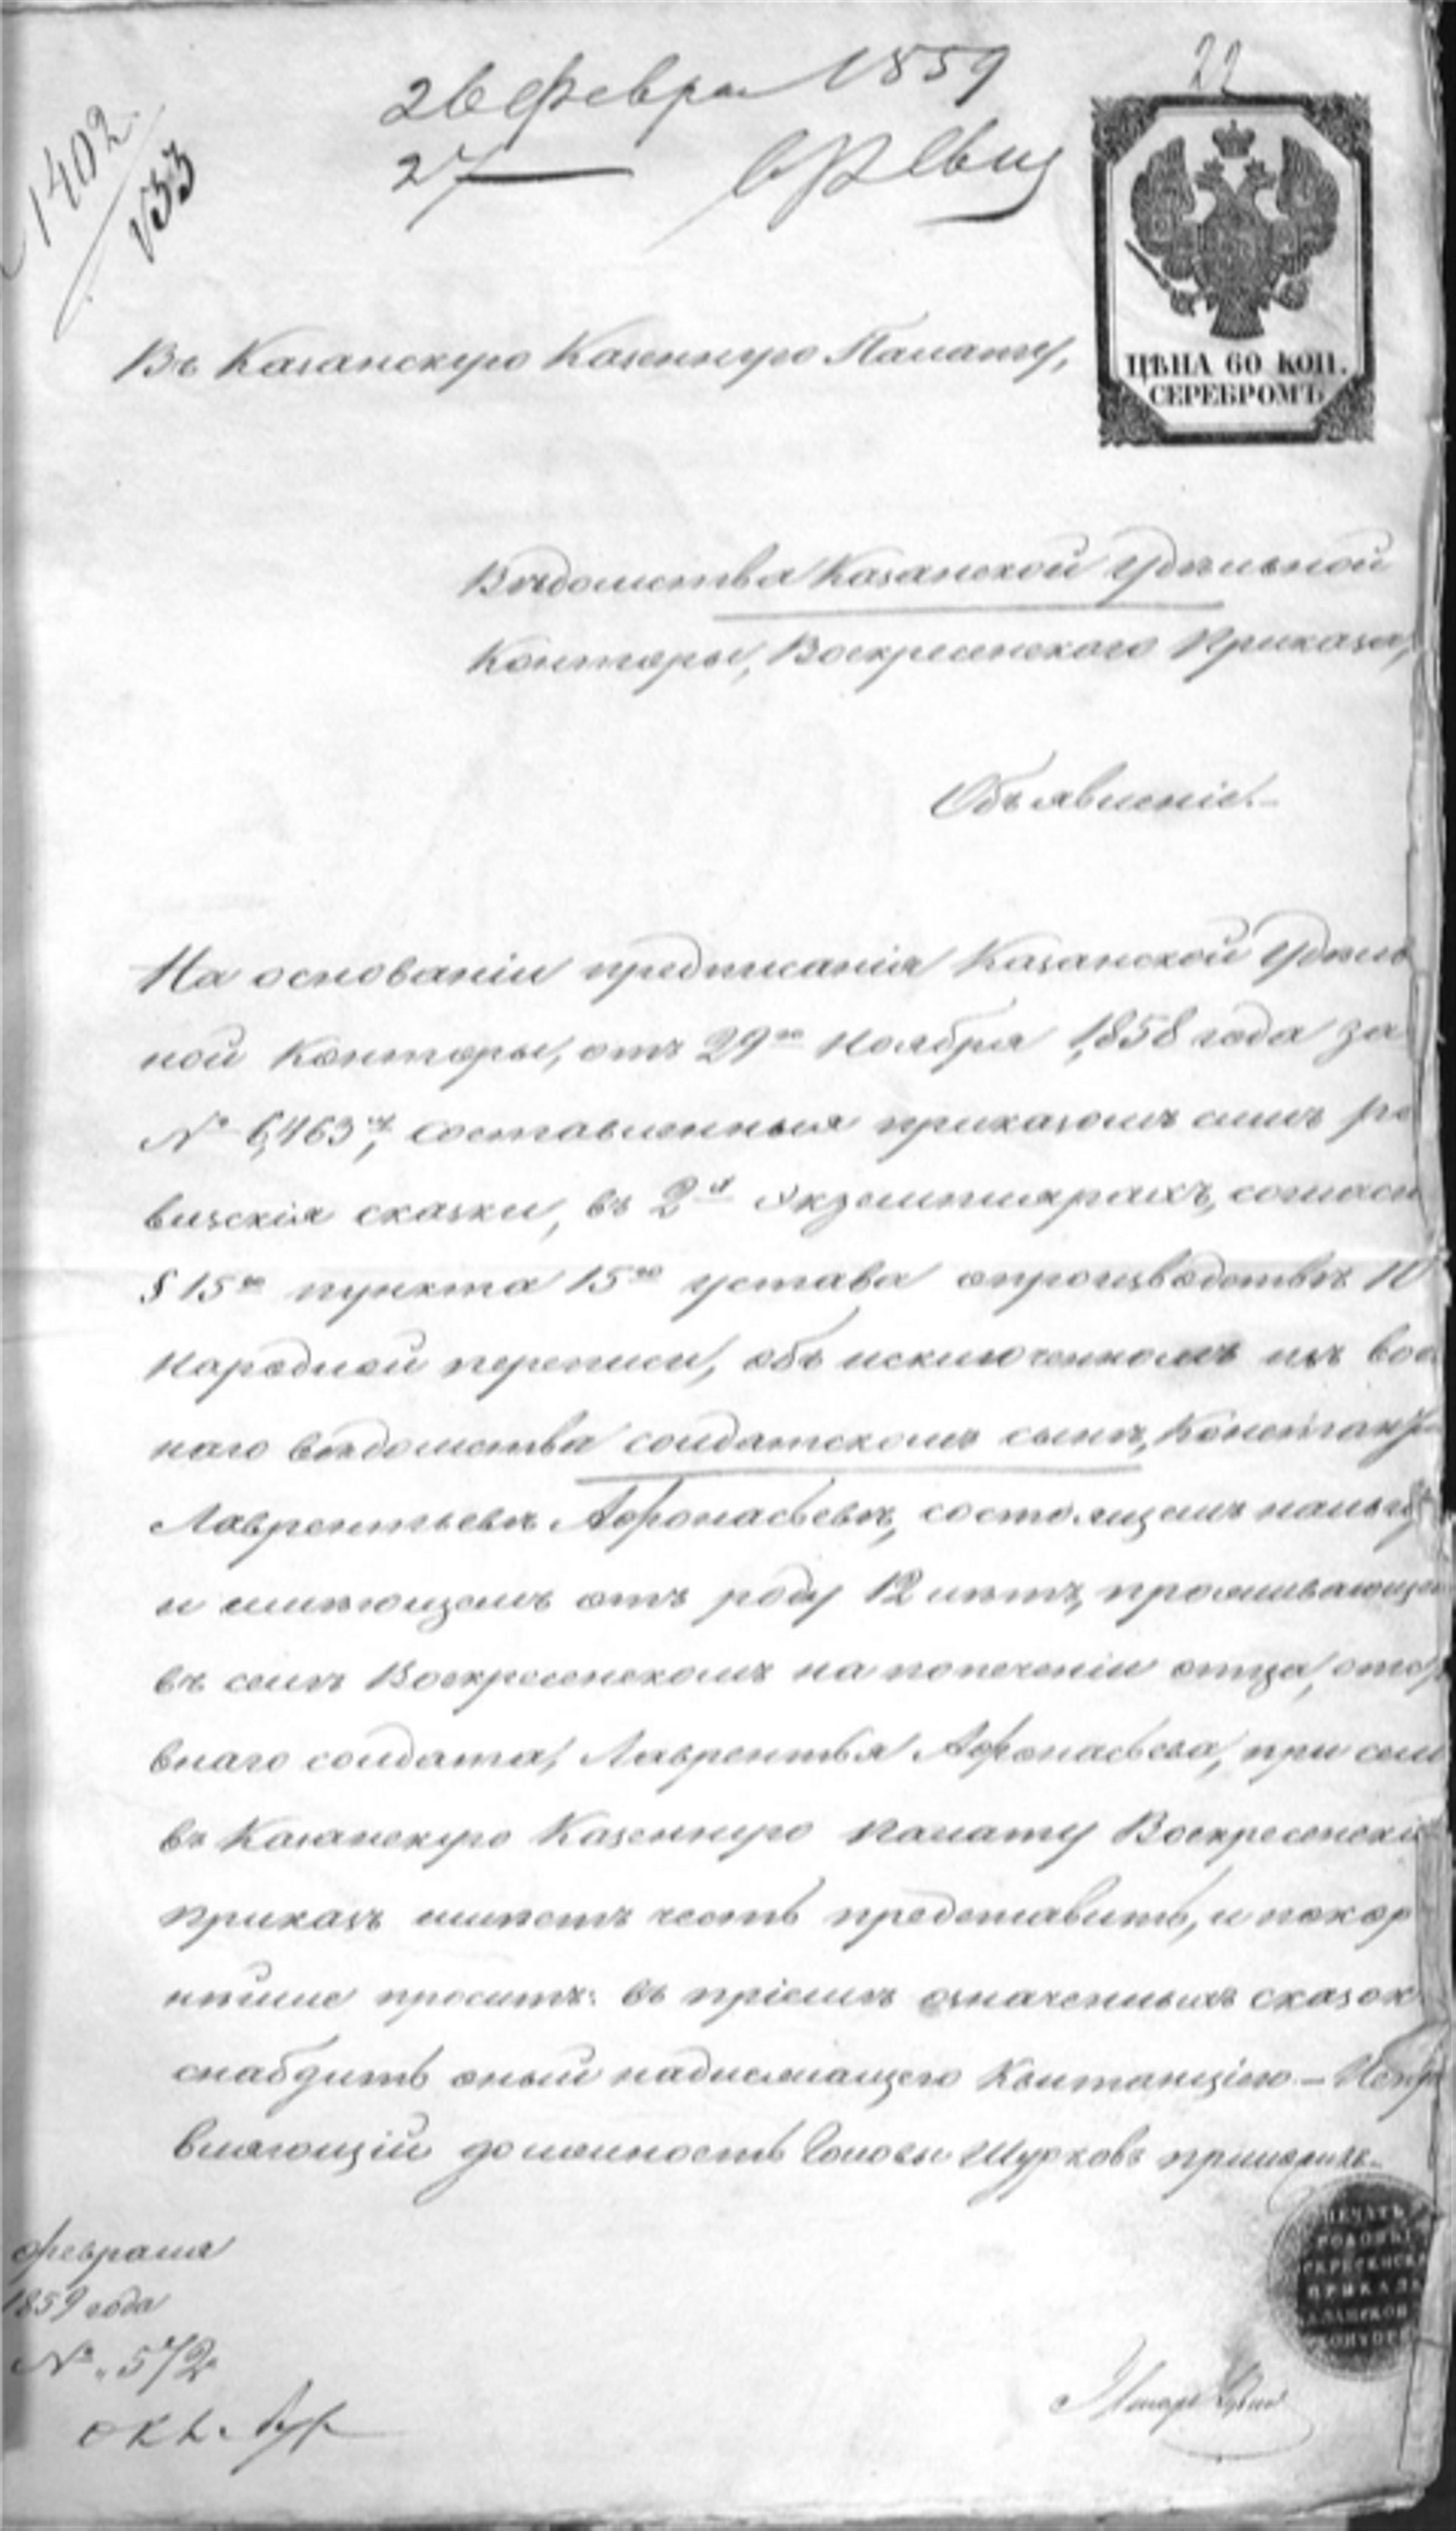 22
26 Февра 1859
27
1402
133
ЦѢНА 60 КОП.
СЕРЕБРОМЪ
Въ Казанскую Казенную Палату,
Вѣдомства Казанской Удѣльной
Конторы, Воскресенскаго Приказа,
Объявленіе.
На основаніи предписанія Казанской Удѣль
ной Конторы, отъ 29го Ноября 1858 года за
№ 6,463, составленныя приказомъ симъ ре
визскія сказки, въ 2х экземплярахъ, согласн
§ 15го пункта 15го устава опроизводствѣ 10
народной переписи, объ исключенномъ изъ вое
наго вѣдомства солдатскомъ сынѣ,
Лаврентьевѣ Афонасьевѣ, состоящемъ
и имѣющемъ отъ роду 12 лѣтъ, проживающе
въ селѣ Воскресенскомъ на попеченіи отца,
внаго солдата, Лаврентья Афонасьева, при сем
въ Казанскую Казенную Палату Воскресенскі
приказъ имѣетъ честь представить, и покор
нѣйше проситъ: въ пріемѣ означенныхъ сказок
снабдить оный надлежащею Квитанціею. – Испр
вляющій должность Головы Шурковъ приложилъ.
ПЕЧАТЬ
СКРЕСЕНСК
ПРИКАЗ
КАЗАНСКОЙ
КОНТОРЫ
Февраля
1859 года
№ 572